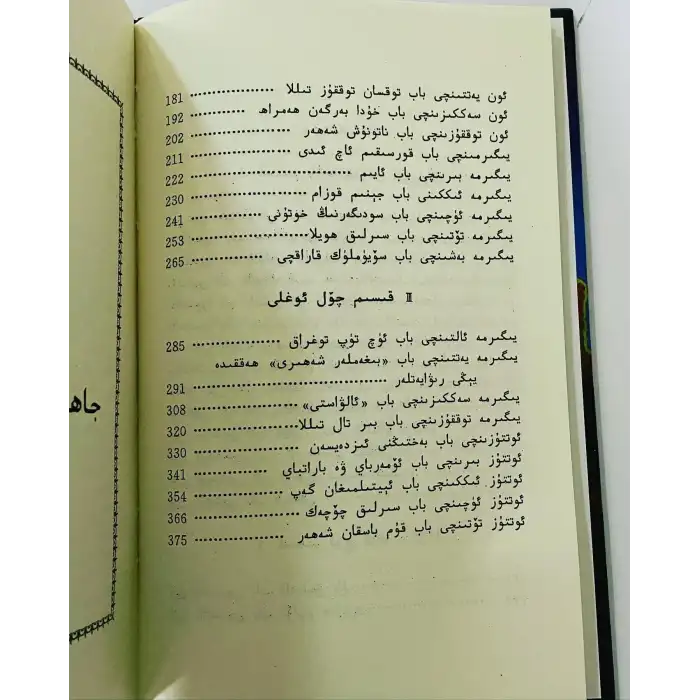 ئون يەتتىنچى باب توقسان توققۇز تىللا ........................ 181
ئون سەككىزىنچى باب خۇدا بەرگەن ھەمراھ ........................ 192
ئون توققۇزىنچى باب ناتونۇش شەھەر ........................ 202
يىگىرمىنچى باب قورسىقىم ئاچ ئىدى ........................ 211
يىگىرمە بىرىنچى باب ئايىم ........................ 222
يىگىرمە ئىككىنى باب جېنىم قوزام ........................ 230
يىگىرمە ئۈچىنچى باب سودىگەرنىڭ خوتۇنى ........................ 241
يىگىرمە تۆتىنچى باب سىرلىق ھويلا ........................ 253
يىگىرمە بەشىنچى باب سۆيۈملۈك قاراقچى ........................ 265
II قىسىم چۆل ئوغلى
يىگىرمە ئالتىنچى باب ئۈچ تۈپ توغراق ........................ 285
يىگىرمە يەتتىنچى باب «بىغەملەر شەھىرى» ھەققىدە
يېڭى رىۋايەتلەر ........................ 291
يىگىرمە سەككىزىنچى باب «ئالۋاستى» ........................ 308
يىگىرمە توققۇزىنچى باب بىر تال تىللا ........................ 320
ئوتتۇزىنچى باب بەختىڭنى ئىزدەيسەن ........................ 330
ئوتتۇز بىرىنچى باب ئۆمەرباي ۋە باراتباي ........................ 341
ئوتتۇز ئىككىنچى باب ئېيتىلمىغان گەپ ........................ 354
ئوتتۇز ئۈچىنچى باب سىرلىق چۆچەك ........................ 366
ئوتتۇز تۆتىنچى باب قۇم باسقان شەھەر ........................ 375